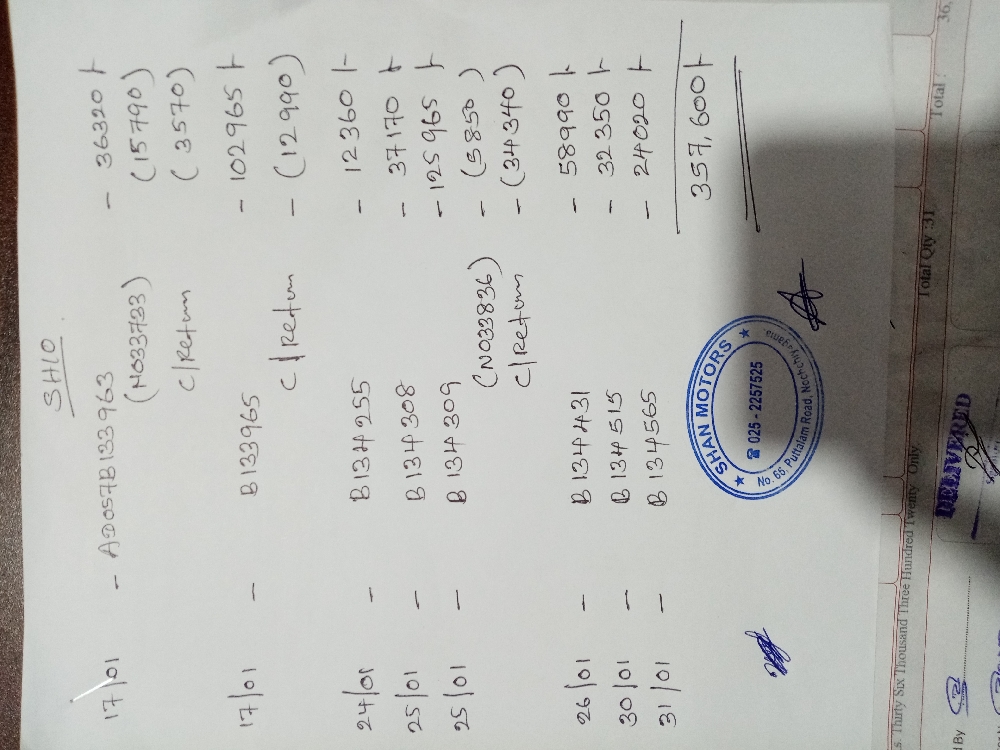 SH10
17/01 - AD057B133963 - 36320/-
(N033733) (15790)
C/Return (3570)
17/01 - B133965 - 102965/-
C/Return - (12990)
24/01 - B134255 - 12360/-
25/01 - B134308 - 37170/-
25/01 - B134309 - 125965/-
(N033836) - (5850)
C/Return - (34340)
26/01 - B134431 - 58990/-
30/01 - B134515 - 32350/-
31/01 - B134565 - 24020/-
357,600/-
SHAN MOTORS
☎ 025 - 2257525
No. 66, Puttalam Road, Nochchiyagama
s. Thirty Six Thousand Three Hundred Twenty Only
Total Qty :31
Total :
36,
DELIVERED
By